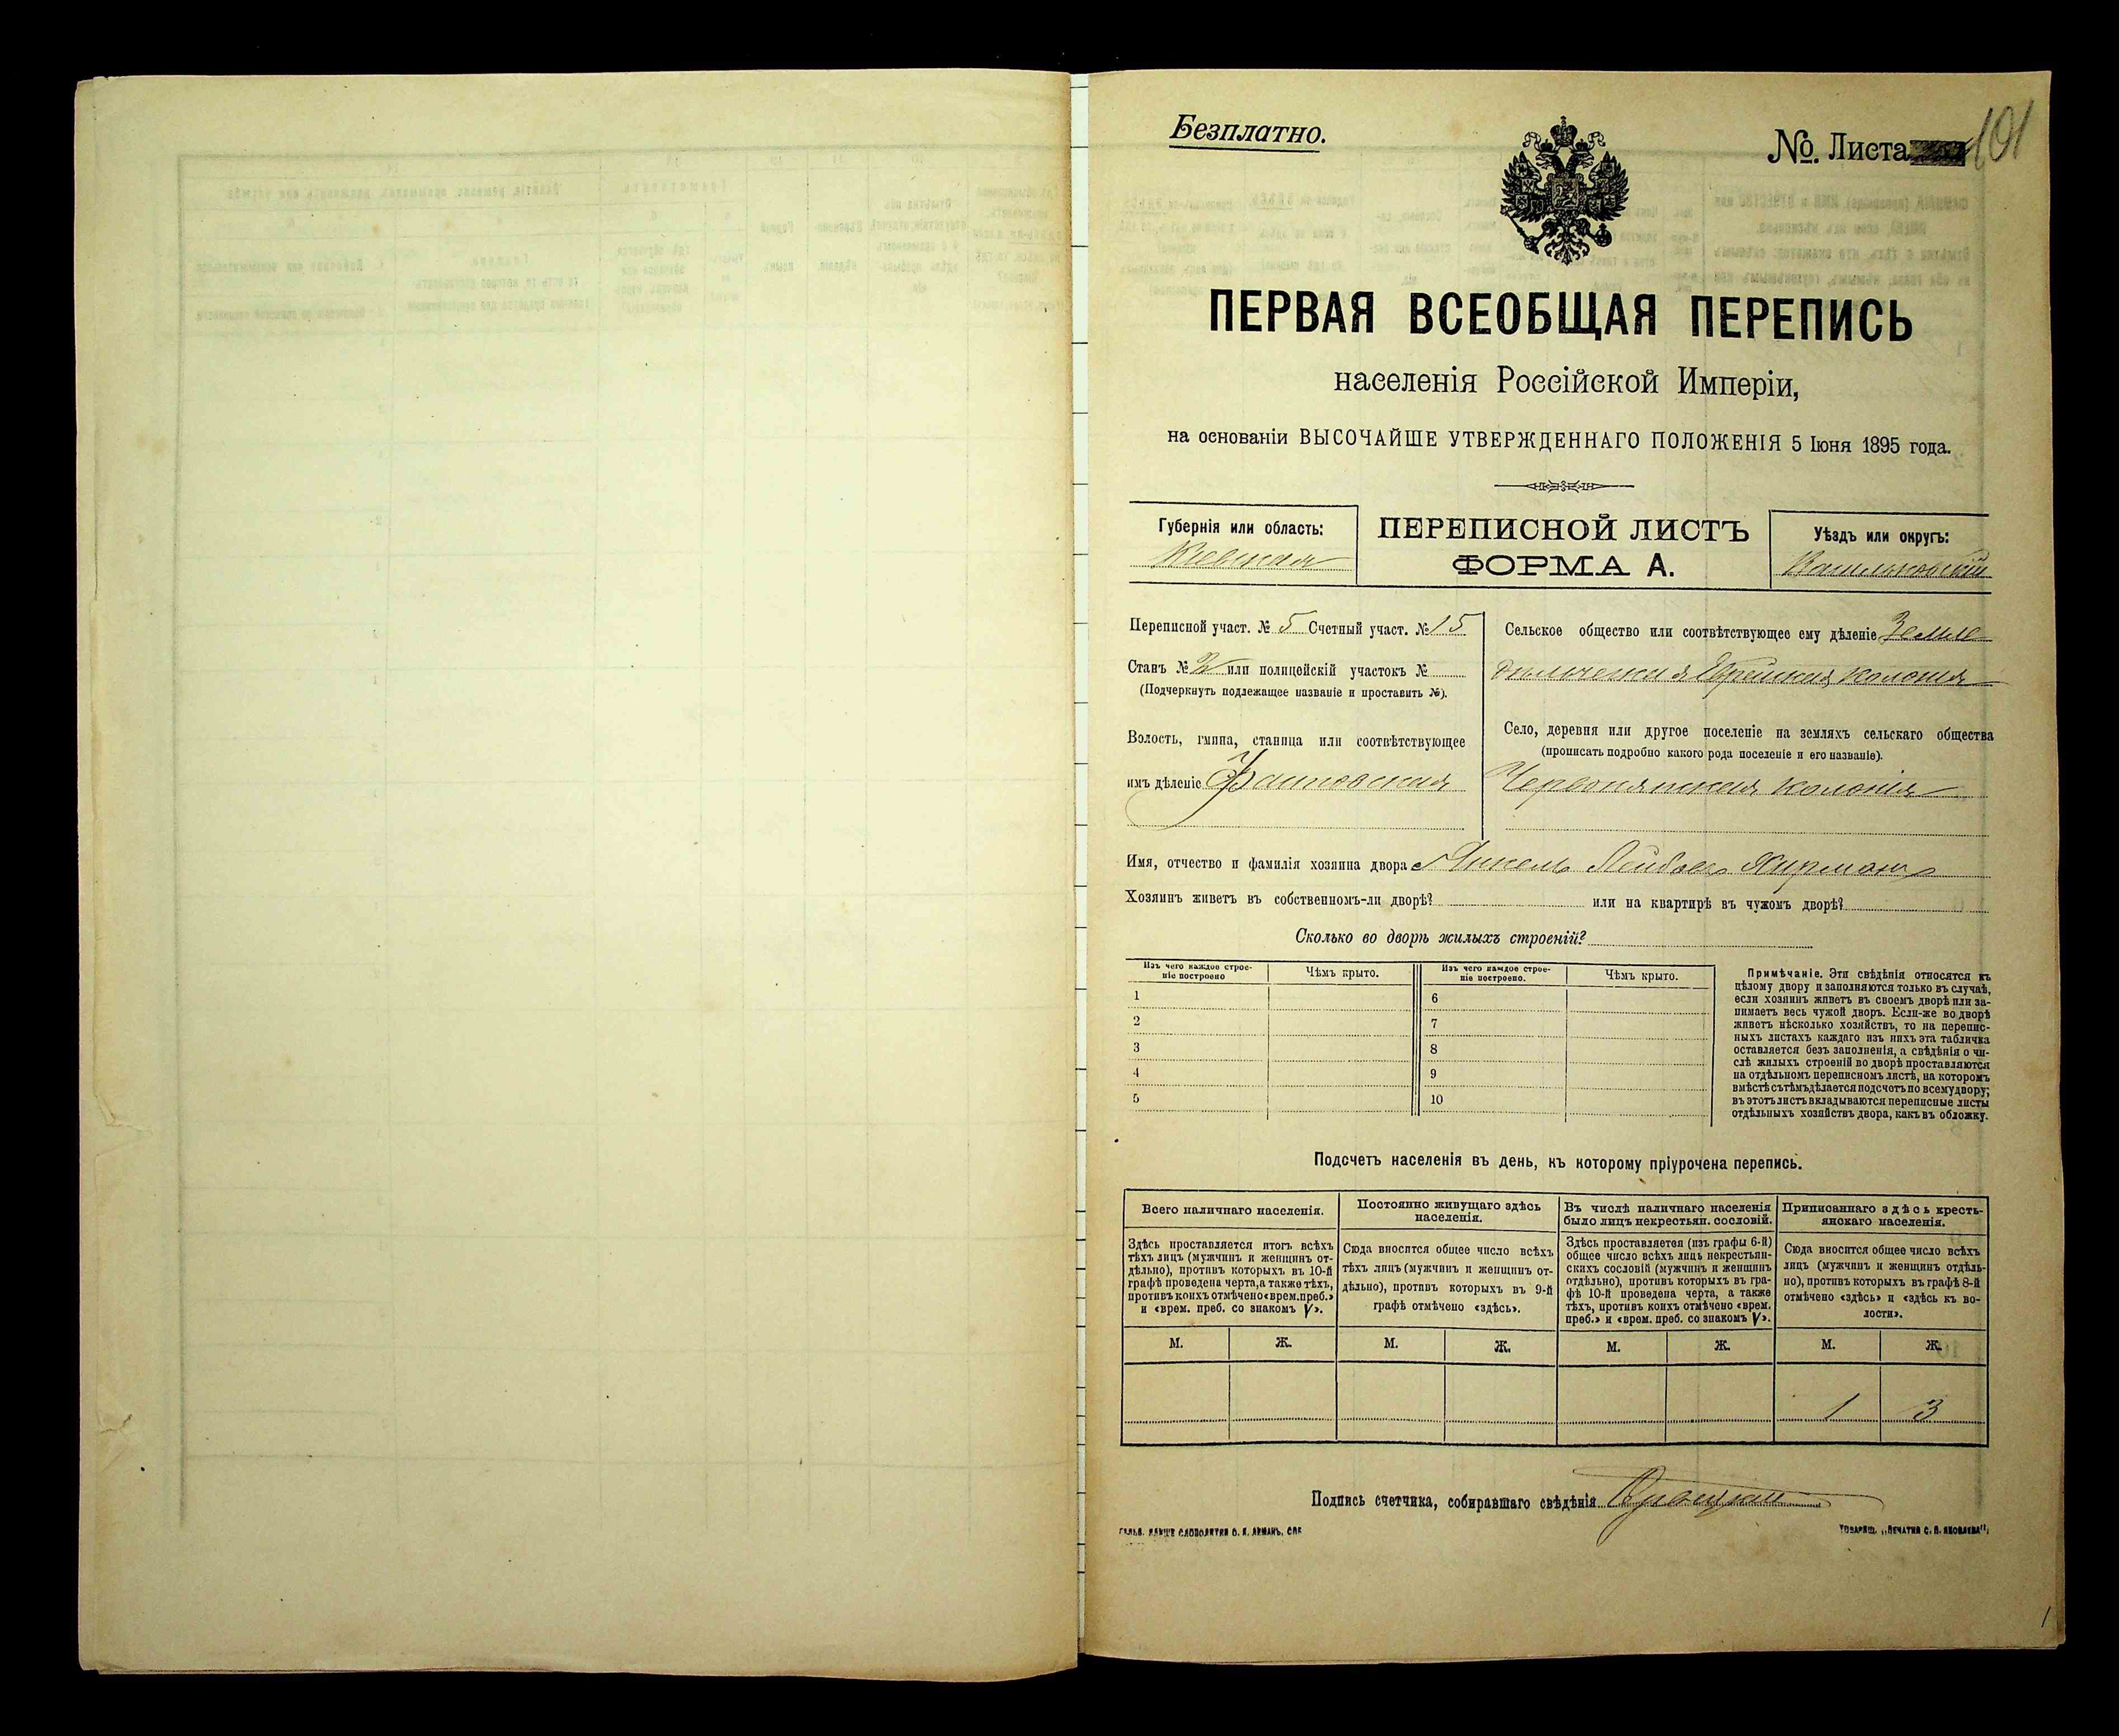 Безплатно.
№. Листа 101
ПЕРВАЯ ВСЕОБЩАЯ ПЕРЕПИСЬ
населенія Россійской Имперіи,
на основаніи ВЫСОЧАЙШЕ УТВЕРЖДЕННАГО ПОЛОЖЕНІЯ 5 Іюня 1895 года.
Губернія или область:
Кіевская
ПЕРЕПИСНОЙ ЛИСТЪ
ФОРМА А.
Уѣздъ или округъ:
Васильковскій
Переписной участ. № 5 Счетный участ. № 15
Станъ № 2 или полицейскій участокъ №
(Подчеркнуть подлежащее названіе и проставить №).
Волость, гмина, станица или соотвѣтствующее
имъ дѣленіе Фастовская
Сельское общество или соотвѣтствующее ему дѣленіе Земле
дѣльческая Еврейская колонія
Село, деревня или другое поселеніе на земляхъ сельскаго общества
(прописать подробно какого рода поселеніе и его названіе).
Червонянская колонія
Имя, отчество и фамилія хозяина двора
Хозяинъ живетъ въ собственномъ-ли дворѣ? или на квартирѣ въ чужомъ дворѣ?
Сколько во дворѣ жилыхъ строеній?
Изъ чего каждое строе-
ніе построено
Чѣмъ крыто.
Изъ чего каждое строе-
ніе построено.
Чѣмъ крыто.
1 6
2 7
3 8
4 9
5 10
Примѣчаніе. Эти свѣдѣнія относятся къ
цѣлому двору и заполняются только въ случаѣ,
если хозяинъ живетъ въ своемъ дворѣ или за-
нимаетъ весь чужой дворъ. Если-же во дворѣ
живетъ нѣсколько хозяйствъ, то на перепис-
ныхъ листахъ каждаго изъ нихъ эта табличка
оставляется безъ заполненія, а свѣдѣнія о чи-
слѣ жилыхъ строеній во дворѣ проставляются
на отдѣльномъ переписномъ листѣ, на которомъ
вмѣстѣ съ тѣмъ дѣлается подсчетъ по всему двору;
въ этотъ листъ вкладываются переписные листы
отдѣльныхъ хозяйствъ двора, какъ въ обложку.
Подсчетъ населенія въ день, къ которому пріурочена перепись.
Всего наличнаго населенія.
Здѣсь проставляется итогъ всѣхъ
тѣхъ лицъ (мужчинъ и женщинъ от-
дѣльно), противъ которыхъ въ 10-й
графѣ проведена черта, а также тѣхъ,
противъ коихъ отмѣчено «врем. преб.»
и «врем. преб. со знакомъ V».
Постоянно живущаго здѣсь
населенія.
Сюда вносится общее число всѣхъ
тѣхъ лицъ (мужчинъ и женщинъ от-
дѣльно), противъ которыхъ въ 9-й
графѣ отмѣчено «здѣсь».
Въ числѣ наличнаго населенія
было лицъ некрестьян. сословій.
Здѣсь проставляется (изъ графы 6-й)
общее число всѣхъ лицъ некрестьян-
скихъ сословій (мужчинъ и женщинъ
отдѣльно), противъ которыхъ въ гра-
фѣ 10-й проведена черта, а также
тѣхъ, противъ коихъ отмѣчено «врем.
преб.» и «врем. преб. со знакомъ V».
Приписаннаго здѣсь кресть-
янскаго населенія.
Сюда вносится общее число всѣхъ
лицъ (мужчинъ и женщинъ отдѣль-
но), противъ которыхъ въ графѣ 8-й
отмѣчено «здѣсь» и «здѣсь къ во-
лости».
М. Ж. М. Ж. М. Ж. М. Ж.
1 3
Подпись счетчика, собиравшаго свѣдѣнія